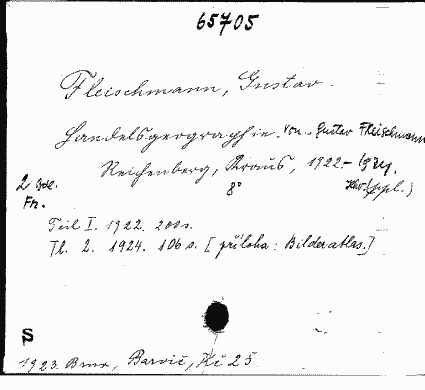 65705
Fleischmann, Gustav.
Handelsgeographie. Von Gustav Fleischmann
Reichenberg, Kraus, 1922-1924.
2 Bde. 8°
Fn.
Teil I. 1922. 200 s.
Tl. 2. 1924. 106 s. [příloha: Bilderatlas.]
S
1923. Brno, Barvič, Kč 25